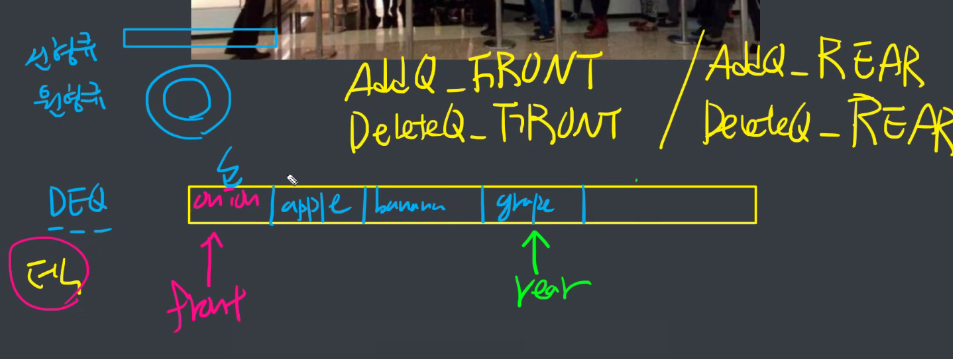 선형큐
원형큐
AddQ_FRONT / AddQ_REAR
DeleteQ_FRONT / DeleteQ_REAR
DEQ
onion apple banana grape
front rear